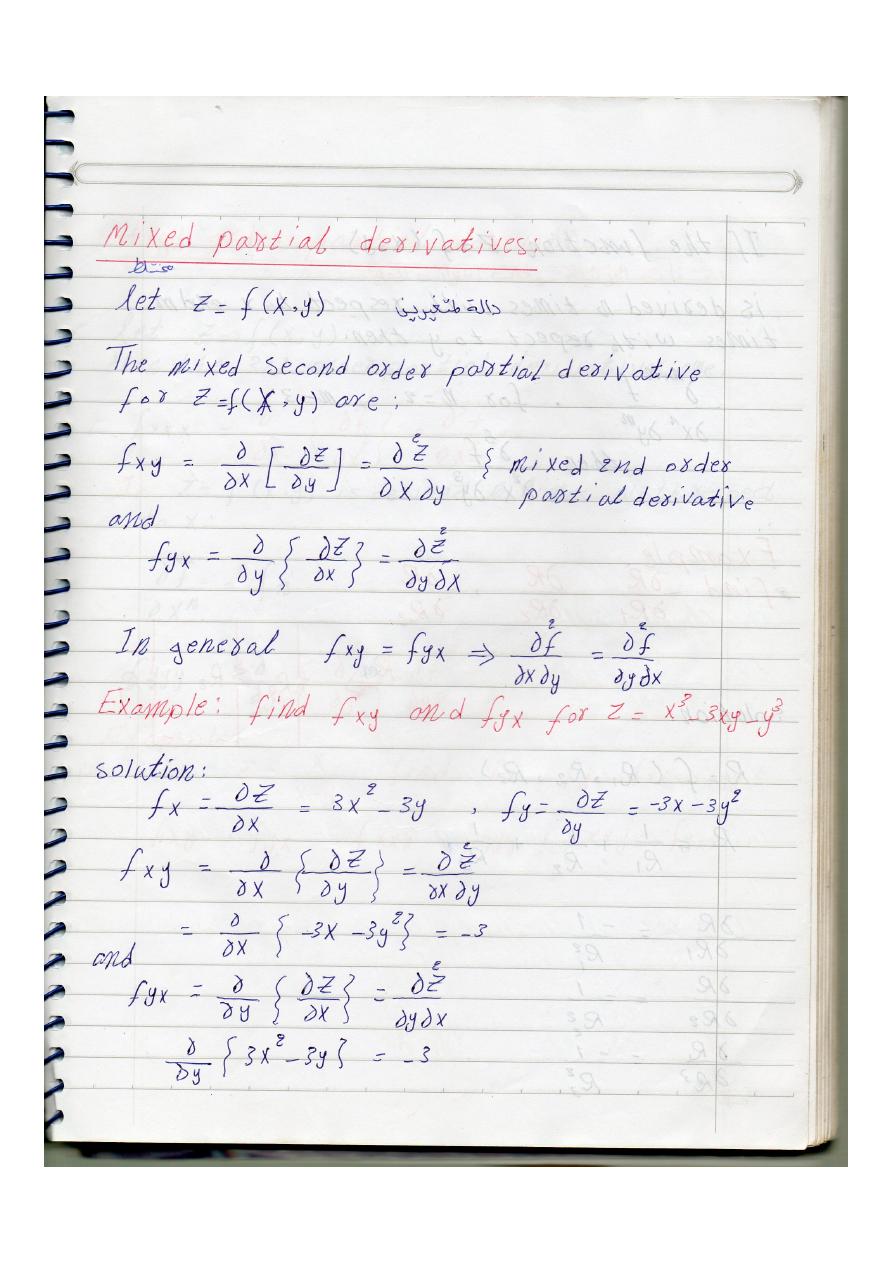 Mixed partial derivatives:
مختلط
let z = f(x,y) دالة لمتغيرين
The mixed second order partial derivative
for z = f(x,y) are :
fxy = ∂/∂x [∂z/∂y] = ∂²z/∂x∂y { mixed 2nd order
partial derivative
and
fyx = ∂/∂y {∂z/∂x} = ∂²z/∂y∂x
In general fxy = fyx ⇒ ∂²f/∂x∂y = ∂²f/∂y∂x
Example: find fxy and fyx for z = x³ - 3xy - y³
solution:
fx = ∂z/∂x = 3x² - 3y , fy = ∂z/∂y = -3x - 3y²
fxy = ∂/∂x {∂z/∂y} = ∂²z/∂x∂y
= ∂/∂x {-3x - 3y²} = -3
and
fyx = ∂/∂y {∂z/∂x} = ∂²z/∂y∂x
∂/∂y {3x² - 3y} = -3